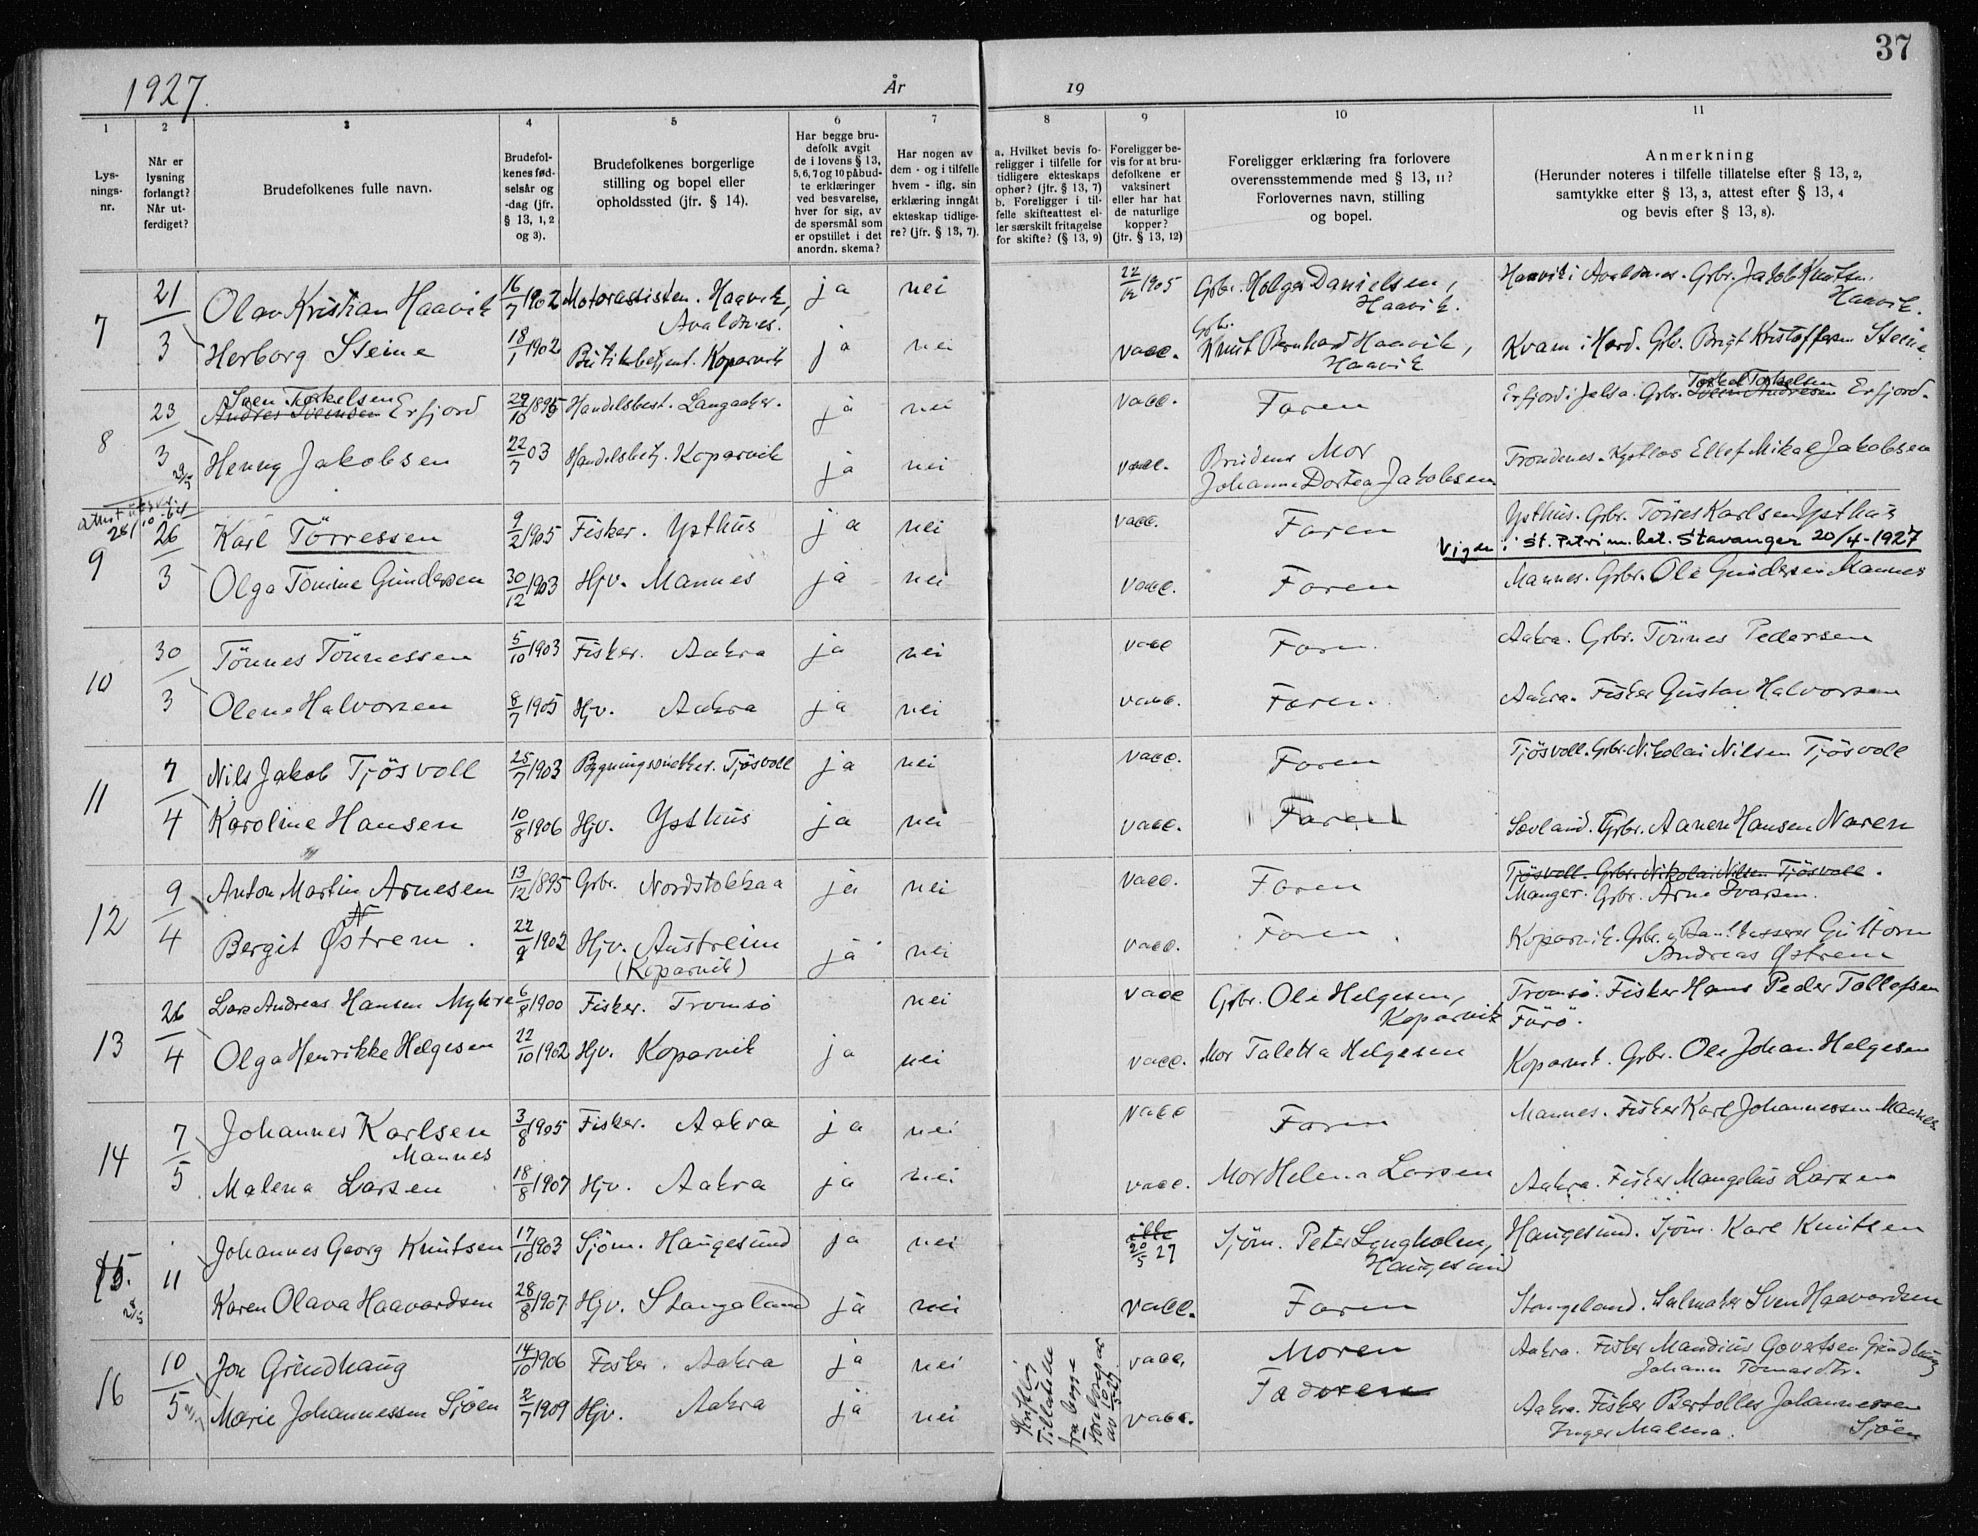 37
1927.
År
19
1
2
3
4
5
6
7
8
9
10
11
Lys-
nings-
nr.
Når er
lysning
forlangt?
Når ut-
ferdiget?
Brudefolkenes fulle navn.
Brudefol-
kenes fød-
selsår og
-dag (jfr.
§ 13, 1, 2
og 3).
Brudefolkenes borgerlige
stilling og bopel eller
opholdssted (jfr. § 14).
Har begge bru-
defolk avgit
de i lovens § 13,
5, 6, 7 og 10 påbud-
te erklæringer
ved besvarelse,
hver for sig, av
de spørsmål som
er opstillet i det
anordn. skema?
Har nogen av
dem - og i tilfelle
hvem - iflg. sin
erklæring inngåt
ekteskap tidlige-
re? (jfr. § 13, 7).
a. Hvilket bevis fo-
religger i tilfelle for
tidligere ekteskaps
ophør? (jfr. § 13, 7)
b. Foreligger i til-
felle skifteattest el-
ler særskilt fritagelse
for skifte? (§ 13, 9)
Foreligger be-
vis for at bru-
defolkene er
vaksinert
eller har hat
de naturlige
kopper?
(jfr. § 13, 12)
Foreligger erklæring fra forlovere
overensstemmende med § 13, 11?
Forlovernes navn, stilling
og bopel.
Anmerkning
(Herunder noteres i tilfelle tillatelse efter § 13, 2,
samtykke efter § 13, 3, attest efter § 13, 4
og bevis efter § 13, 8).
7 21/3 Olav Kristian Haavik 16/7 1902 Motorassistent. Haavik, ja nei 22/12 1905 Grbr. Holger Danielsen, Haavik i Avaldsnes. Grbr. Jakob Knutsen
Avaldsnes. Haavik. Haavik.
Herborg Steine 18/1 1902 Butikkbetjent. Koparvik ja nei vacc. Grbr. Knut Bernhard Haavik, Kvam i Hard. Grbr. Brigt Kristoffersen Steine
Haavik
8 23/3 Sven Torkelsen
Andres Svendsen Erfjord 29/10 1895 Handelsbest. Langaaker. ja nei vacc. Faren Erfjord i Jelsa. Grbr. Torkel Torkelsen
Sven Andresen Erfjord.
Henny Jakobsen 22/7 03 Handelsbetj. Koparvik ja nei vacc. Brudens Mor Trondenes. Ellef Mikal Jakobsen
Johanne Dortea Jakobsen
9 26/3 Karl Törressen 9/2 1905 Fisker. Ysthus ja nei vacc. Faren Ysthus. Grbr. Törres Karlsen Ysthus
Vigde i St. Petri m.het. Stavanger 20/4-1927
Olga Tomine Gundersen 30/12 1903 Hjv. Mannes ja nei vacc. Faren Mannes. Grbr. Ole Gundersen Mannes
10 30/3 Tönnes Tönnessen 5/10 1903 Fisker. Aakra ja nei vacc Faren. Aakra. Grbr. Tönnes Pedersen
Olene Halvorsen 8/7 1905 Hjv. Aakra ja nei vacc. Faren. Aakra. Fisker Gustav Halvorsen
11 7/4 Nils Jakob Tjösvoll 25/7 1903 Bygningssnekker. Tjösvoll ja nei vacc. Faren Tjösvoll. Grbr. Nikolai Nilsen Tjösvoll
Karoline Hansen 10/8 1906 Hjv. Ysthus ja nei vacc. Faren Sævland. Grbr. Aanen Hansen Naren
12 9/4 Anton Martin Arnesen 13/12 1895 Grbr. Nordstokkaa ja nei vacc. Faren Tjösvoll. Grbr. Nikolai Nilsen Tjösvoll.
Manger. Grbr. Arne Ivarsen.
Bergit Østrem. 22/9 1902 Hjv. Austreim ja nei vacc. Faren. Koparvik. Grbr. og Bankkasserer Guttorm
(Koparvik) Andreas Østrem
13 26/4 Lars Andreas Hansen Myhre 6/8 1900 Fisker. Tromsö nei vacc Grbr. Ole Helgesen, Tromsö. Fisker Hans Peder Tollefsen
Koparvik
Olga Henrikke Helgesen 22/10 1902 Hjv. Koparvik ja nei vacc. Mor Taletta Helgesen Koparvik. Grbr. Ole Johan Helgesen
14 7/5 Johannes Karlsen 3/8 1905 Fisker. Aakra ja nei vacc Faren Mannes. Fisker Karl Johannessen Mannes
Mannes
Malena Larsen 18/8 1907 Hjv. Aakra ja nei vacc. Mor Helena Larsen Aakra. Fisker Mangelus Larsen
15. 11 Johannes Georg Knutsen 17/10 1903 Sjöm. Haugesund ja nei ikke 20/5 27 Sjöm. Peter Lyngholm, Haugesund. Sjöm. Karl Knutsen
Haugesund
28/5 Karen Olava Haavardsen 28/8 1907 Hjv. Stangaland ja nei vacc. Faren Stangeland. Seilmaker Sven Haavardsen
16 10/5 Jon Grindhaug 14/10 1906 Fisker. Aakra ja nei Skriftlig Tillatelse fra begge vacc. Moren Aakra. Fisker Mandius Govertsen Grindhaug
Johanne Tomasdtr.
Marie Johannessen Sjöen 2/7 1909 Hjv. Aakra ja nei vacc. Faderen Aakra. Fisker Bertolles Johannessen
Inger Malena. Sjöen